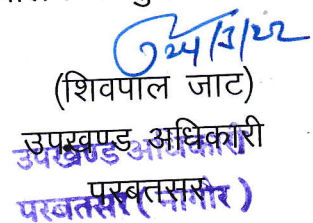 24/3/22
(शिवपाल जाट)
उपखण्ड अधिकारी
परबतसर
उपखण्ड अधिकारी
परबतसर (नागौर)